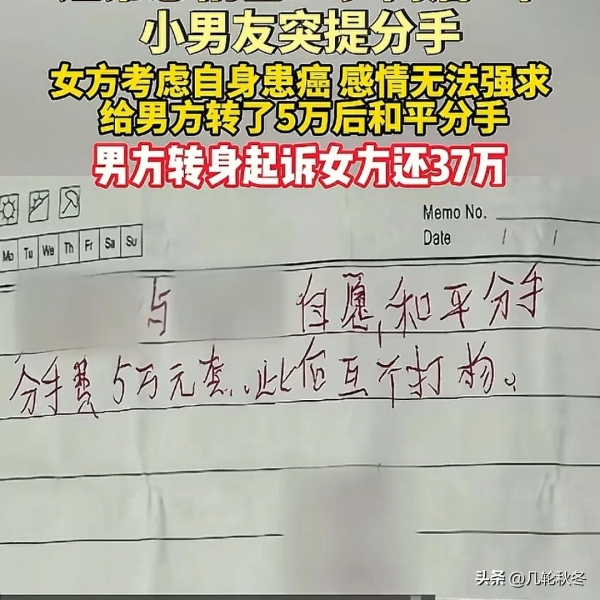 小男友突提分手
女方考虑自身患癌 感情无法强求
给男方转了5万后和平分手
男方转身起诉女方还37万
Memo No.
Mo Tu We Th Fr Sa Su
Date / /
与 自愿,和平分手
分手费5万元整.此后互不打扰。
头条 @几轮秋冬